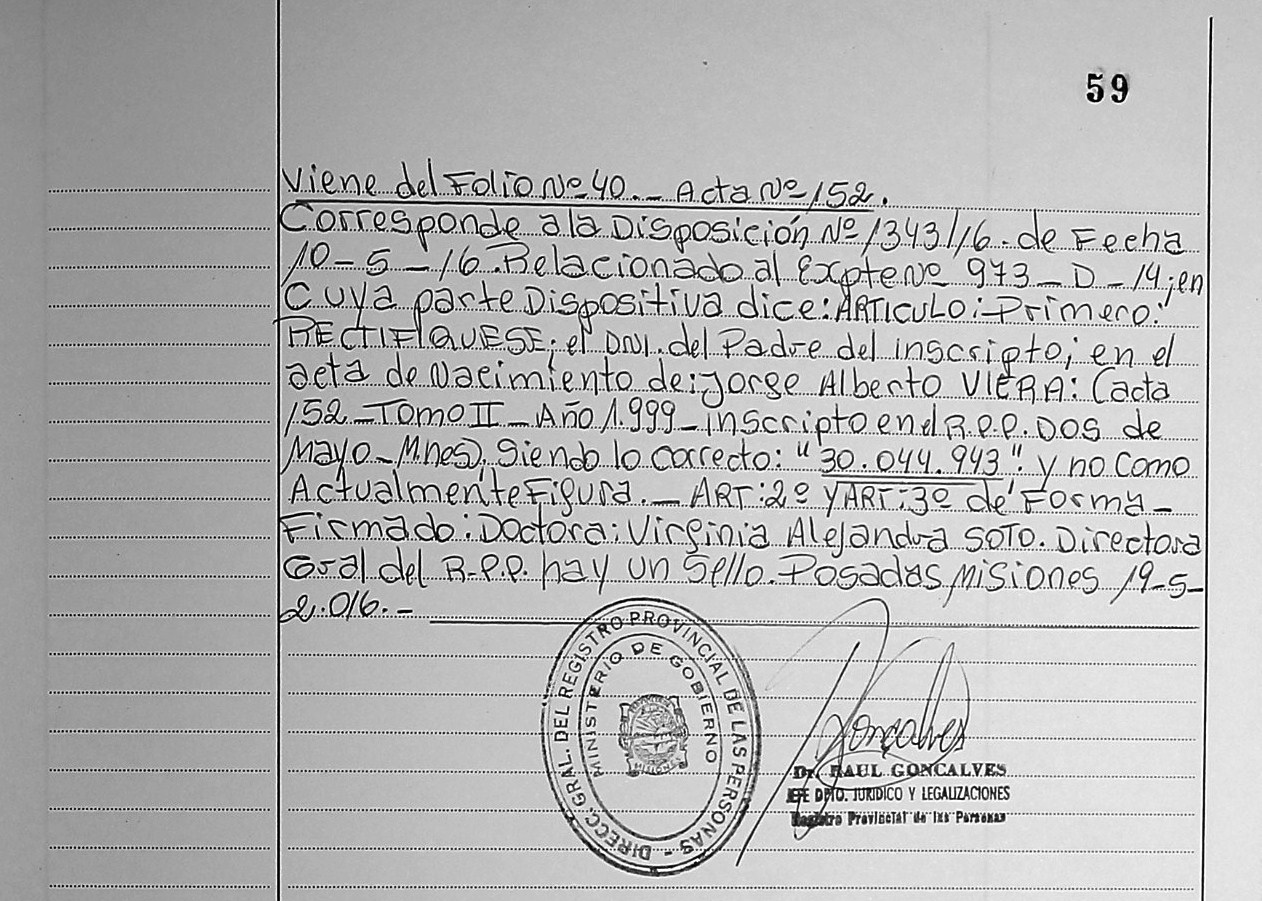 59
Viene del Folio Nº 40._ Acta Nº 152.
Corresponde a la Disposición Nº 1343/16. de Fecha
10-5-16. Relacionado al Expte Nº 973-D-14; en
Cuya parte Dispositiva dice: ARTICULO: Primero:
RECTIFIQUESE; el DNI. del Padre del inscripto; en el
acta de Nacimiento de: Jorge Alberto VIERA: (acta
152 - Tomo II - Año 1.999 - inscripto en el R.P.P. DOS de
Mayo - Mnes). Siendo lo correcto: "30.044.943" y no como
Actualmente Figura. _ ART: 2º y ART: 3º de Forma -
Firmado: Doctora: Virginia Alejandra SOTO. Directora
Gral del R.P.P. hay un Sello. Posadas, Misiones 19-5-
2.016.-
DIRECC. GRAL. DEL REGISTRO PROVINCIAL DE LAS PERSONAS -
MINISTERIO DE GOBIERNO
MISIONES
Goncalves
Dr. RAUL GONCALVES
JEFE DPTO. JURIDICO Y LEGALIZACIONES
Registro Provincial de las Personas